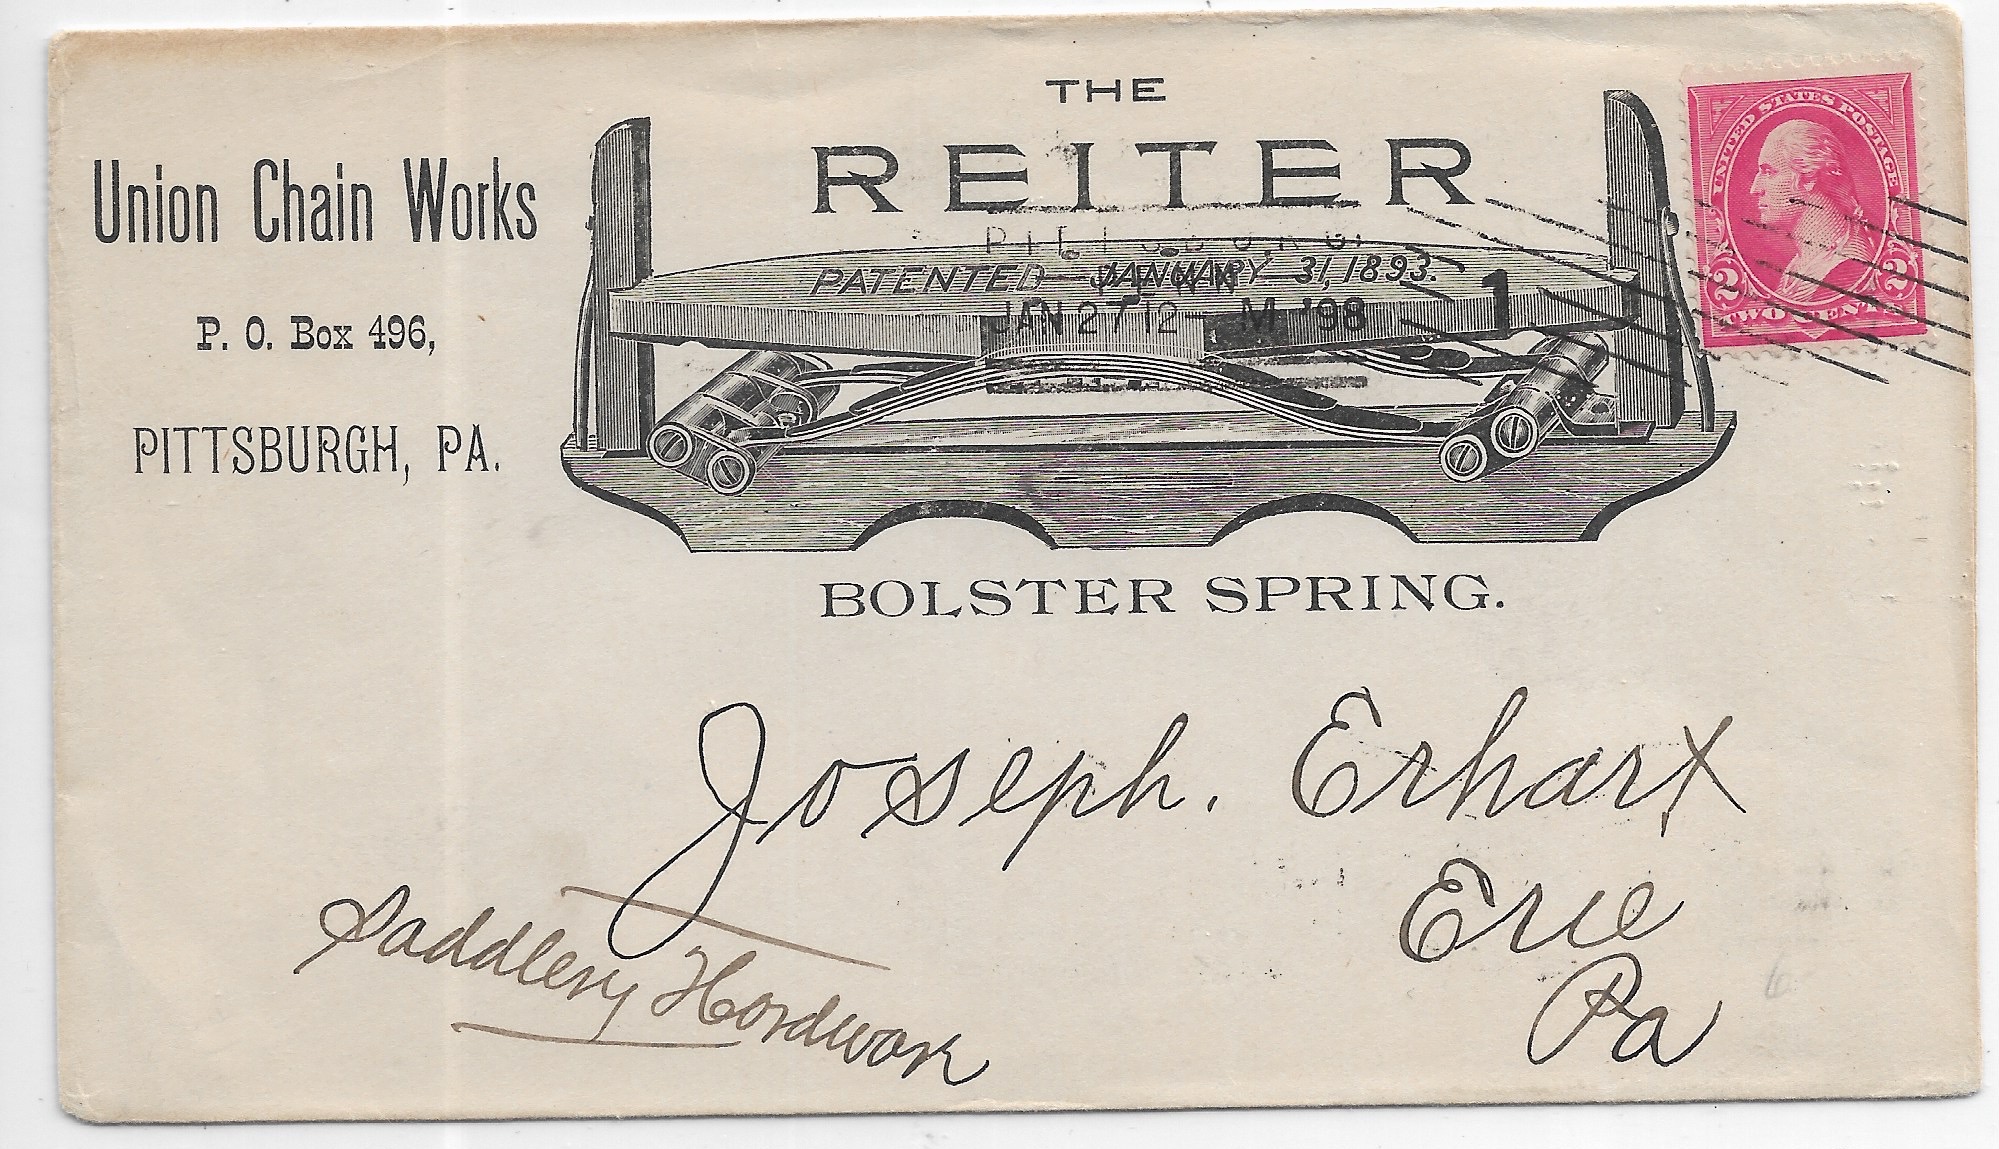 Union Chain Works
P. O. Box 496,
PITTSBURGH, PA.
THE
REITER
PATENTED JANUARY 31, 1893.
BOLSTER SPRING.
JAN 27 12- M '98
1
UNITED STATES POSTAGE
2 2
TWO CENTS
Joseph. Erhart
Erie
Pa
Saddlery Hardware